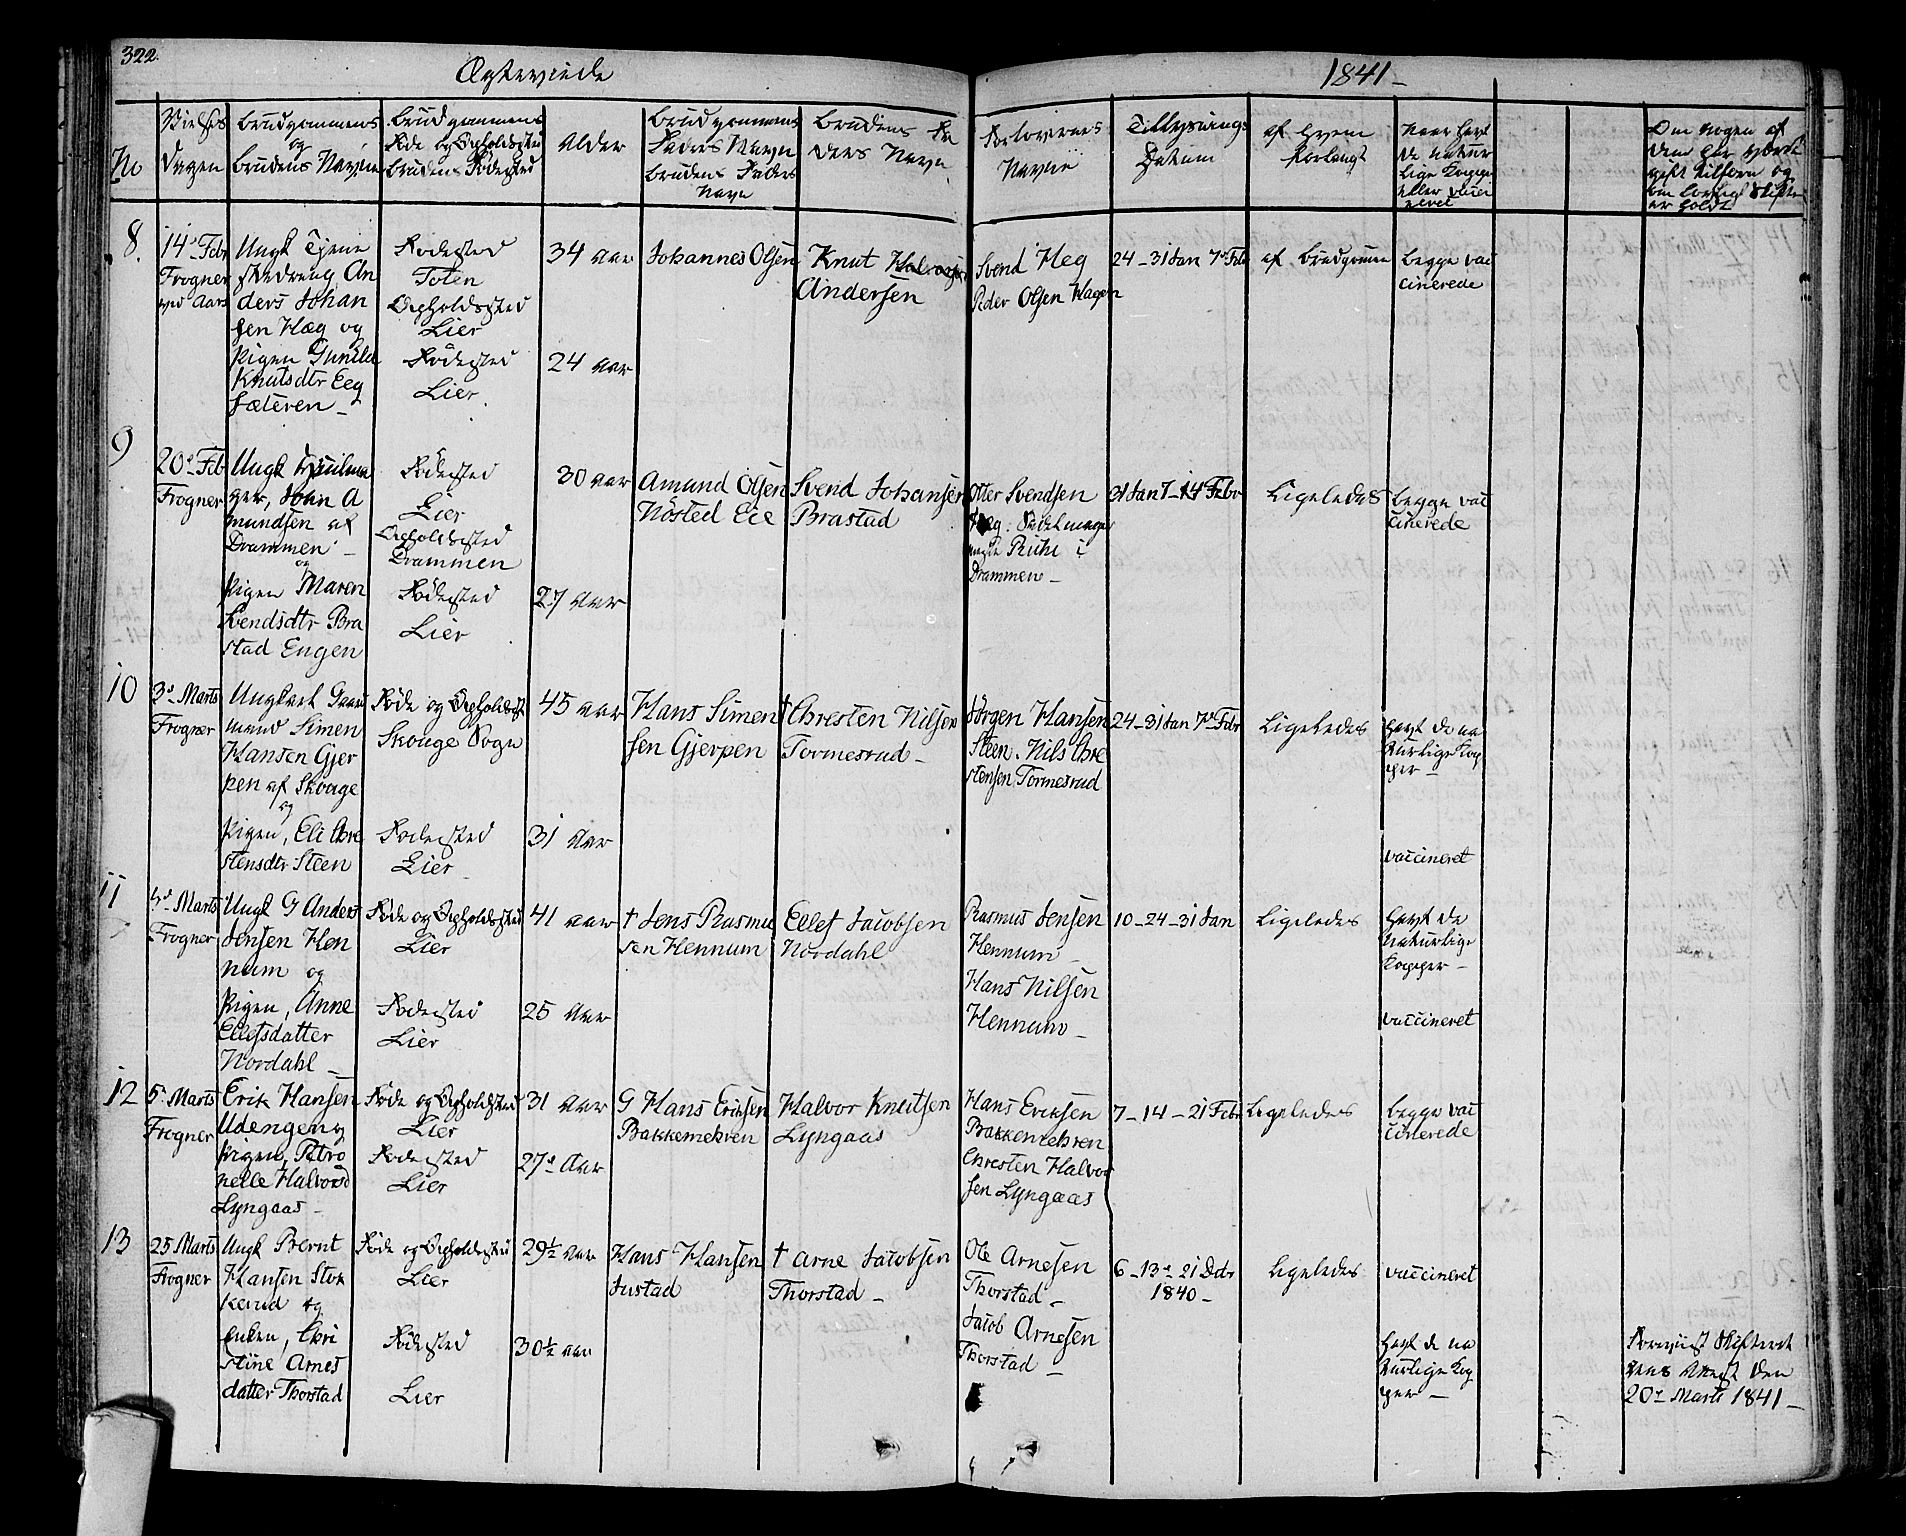 322.
Ægteviede
1841-
No
Vielses
Dagen
Brudgommens
og
Brudens Navne
Brudgommens
Føde og Opholdssted
Brudens Fødested
Alder
Brudgommens
Faders Navn
Brudens Faders
Navn
Brudens Fa
ders Navn
Forlovernes
Navne
Tillysnings
Datum
af hvem
forlangt
Naar havt
de natur
lige Kopper
eller vacci
neret
Om nogen af
dem har været
gift tilforn og
om lovligt Skifte
er holdt
8.
14de Febr
Frogner
ved Aars
Ungk Tjene
ste Dreng, An
ders Johan
sen Hæg og
Pigen Gunild
Knutsdtr Eeg
sæteren -
Fødested
Toten
Opholdssted
Lier
Fødested
Lier
34 aar
24 aar
Johannes Olsen
Knut
Andersen
Svend Heg
Peder Olsen Hagen
24-31 Jan 7de Feb
af Brudgomen
begge vac
cinerede
9
20de Feb
Frogner
Ungk
ger, John A
mundsen af
Drammen -
og
Pigen Maren
Svendsdtr Bra
stad Engen
Fødested
Lier
Opholdssted
Drammen
Fødested
Lier
30 aar
27 Aar
Amund Olsen
Nøsted Eie
Svend Johansen
Brastad
Otter Svendsen
Hæg. Sadelmager
i
Drammen -
31 Jan 7-14 Febr
Ligeledes
begge vac
cinerede
10
3de Marts
Frogner
Ungkarl Gaar
mand Simen
Hansen Gjer
pen af Skouge
og
Pigen, Eli Chre
stensdtr Steen
Føde og Opholdsst
Skouge Sogn
Fødested
Lier
45 aar
31 Aar
Hans Simen
sen Gjerpen
† Chresten Nilsen
Tormesrud -
Jørgen Hansen
Steen. Nils Chre
stensen Tormesrud
24-31 Jan 7de Febr
Ligeledes
havt de na
turlige Kop
per -
vaccineret
11
4de Marts
Frogner
Ungk G Anders
Jensen Hen
num og
Pigen, Anne
Ellefsdatter
Nordahl -
Føde og Opholdssted
Lier
Fødested
Lier
41 aar
25 Aar
† Jens Rasmu
sen Hennum
Ellef Jacobsen
Nordahl
Rasmus Jensen
Hennum -
Hans Nilsen
Hennum -
10-24-31 Jan
Ligeledes
havt de
naturlige
Kopper -
vaccineret
12
5te Marts
Frogner
Erik Hansen
Udengen og
Pigen, Petro
nelle Halvorsd
Lyngaas -
Føde og Opholdssted
Lier
Fødested
Lier
31 Aar
27de Aar
G Hans Eriksen
Bakkemehren
Halvor Knutsen
Lyngaas
Hans Eriksen
Bakkemehren
Chresten Halvor
sen Lyngaas
7-14-21 Febr
Ligeledes
begge vac
cinerede
13
25 Marts
Frogner
Ungk Bernt
Hansen Stok
kerud og
Enken, Chri
stine Arnes
datter Thorstad
Føde og Opholdssted
Lier
Fødested
Lier
29½ Aar
30½ aar
Hans Hansen
Justad
† Arne Jacobsen
Thorstad -
Ole Arnesen
Thorstad -
Jacob Arnesen
Thorstad -
6-13de-21 Dcbr
1840-
Ligeledes
vaccineret
havt de na
turlige Kop
per -
Foreviist Skifteret
tens Attest den
20de Marts 1841-